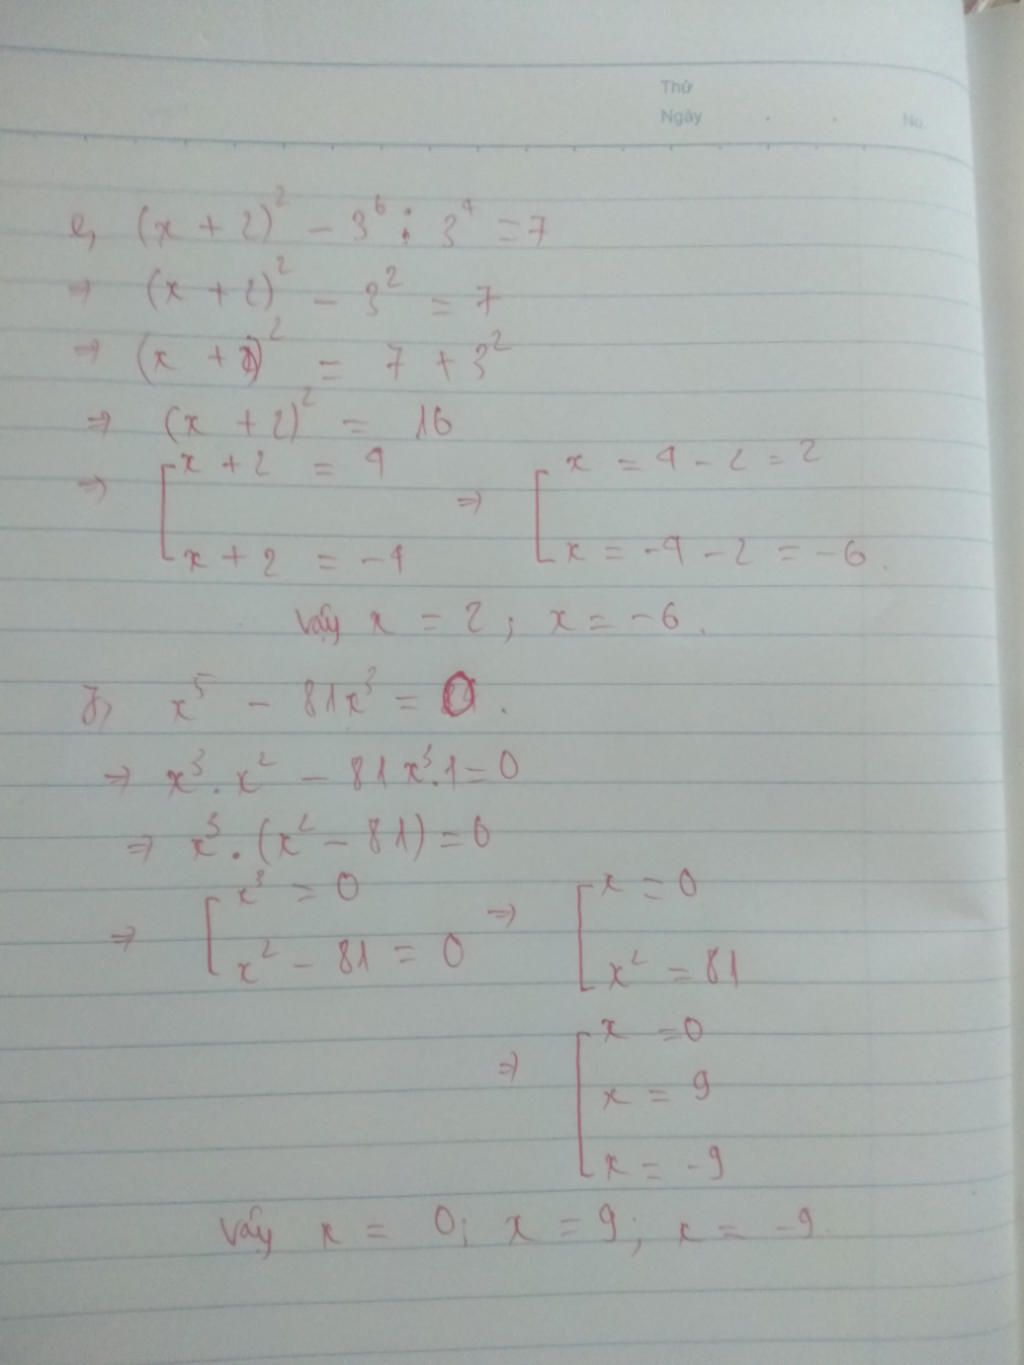 Thứ
Ngày . . No.
e, (x + 2)² - 3⁶ : 3⁴ = 7
⇒ (x + 2)² - 3² = 7
⇒ (x + 2)² = 7 + 3²
⇒ (x + 2)² = 16
⇒ [ x + 2 = 4 ⇒ [ x = 4 - 2 = 2
x + 2 = -4 x = -4 - 2 = -6.
Vậy x = 2 ; x = -6.
f, x⁵ - 81x³ = 0.
⇒ x³ . x² - 81x³.1 = 0
⇒ x³ . (x² - 81) = 0
⇒ [ x³ = 0 ⇒ [ x = 0
x² - 81 = 0 x² = 81
⇒ [ x = 0
x = 9
x = -9
Vậy x = 0; x = 9; x = -9